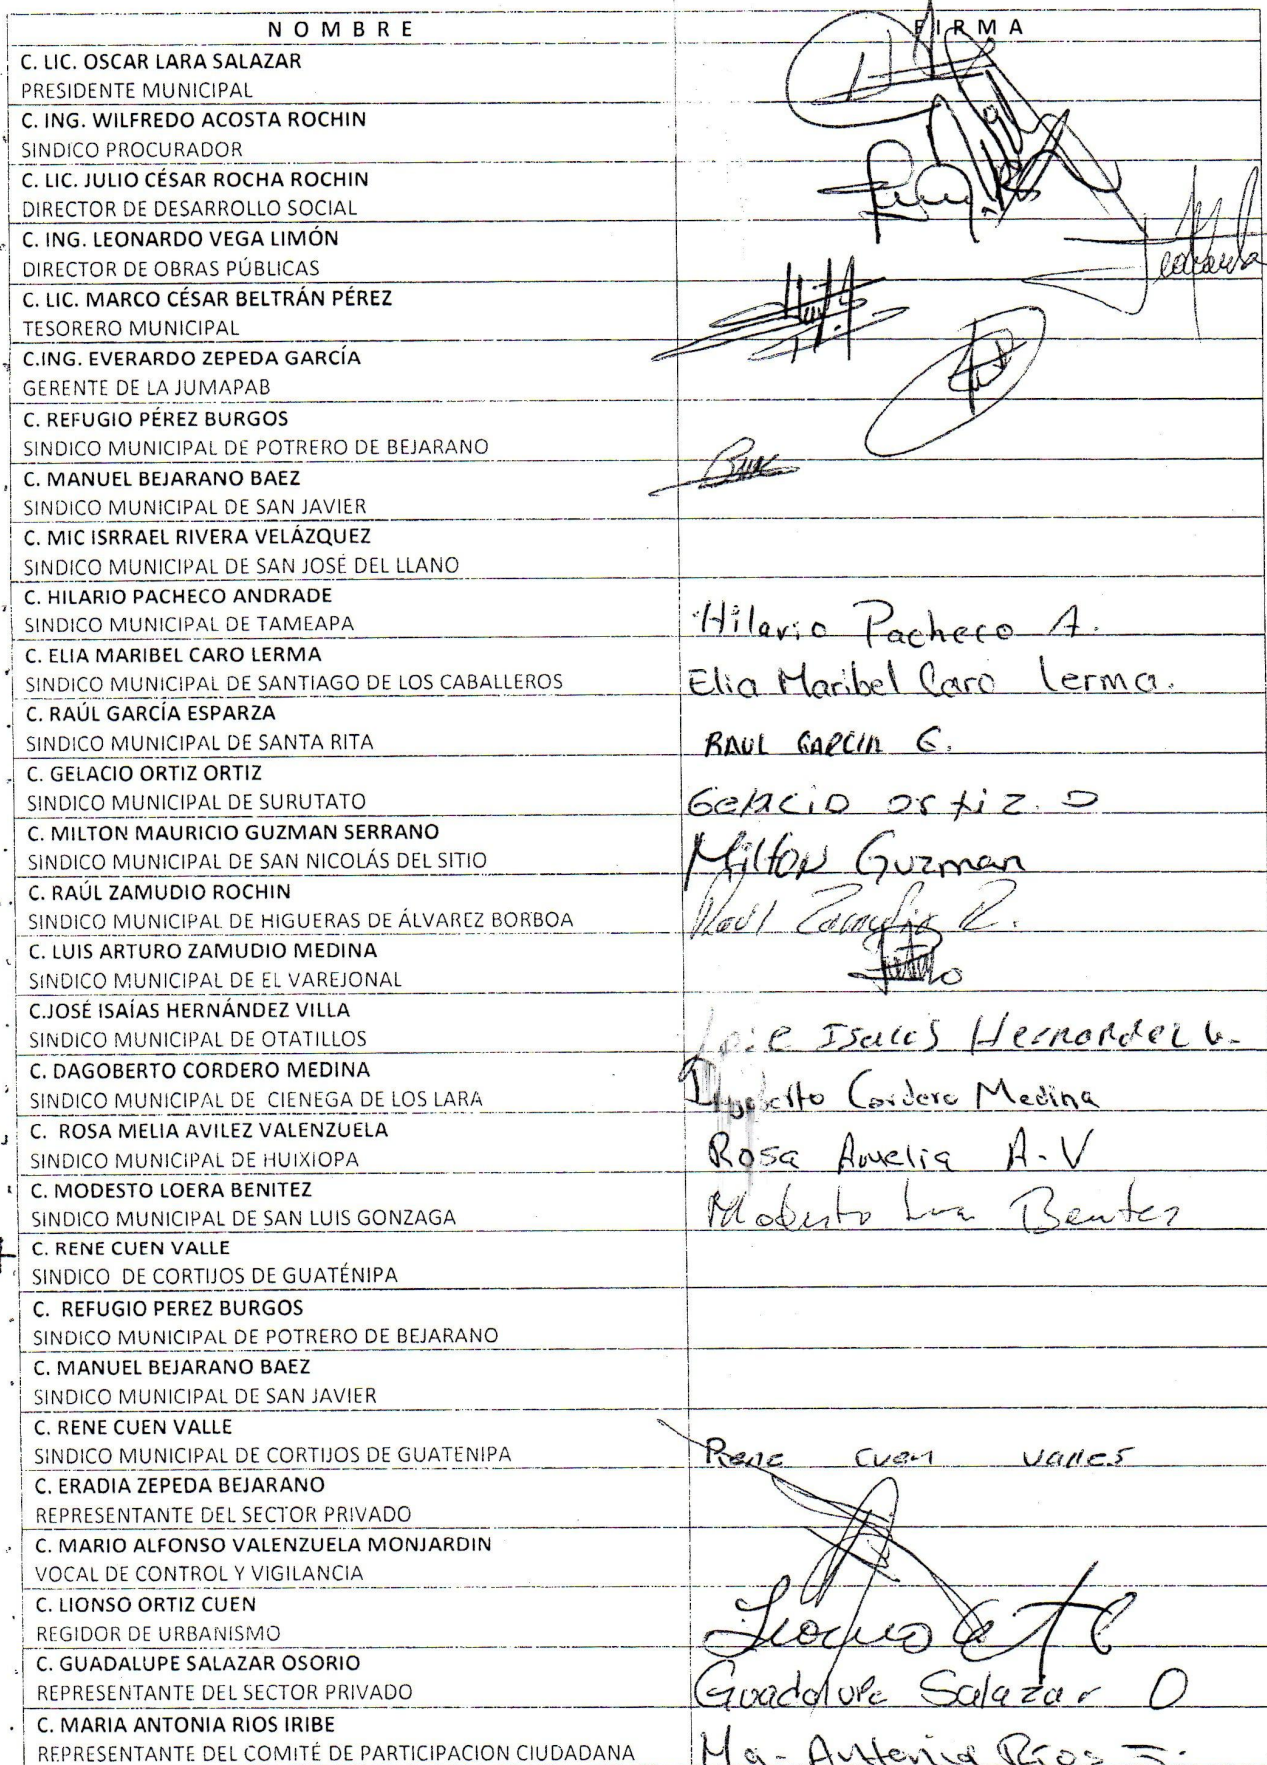 NOMBRE FIRMA
C. LIC. OSCAR LARA SALAZAR
PRESIDENTE MUNICIPAL
C. ING. WILFREDO ACOSTA ROCHIN
SINDICO PROCURADOR
C. LIC. JULIO CÉSAR ROCHA ROCHIN
DIRECTOR DE DESARROLLO SOCIAL
C. ING. LEONARDO VEGA LIMÓN
DIRECTOR DE OBRAS PÚBLICAS
C. LIC. MARCO CÉSAR BELTRÁN PÉREZ
TESORERO MUNICIPAL
C.ING. EVERARDO ZEPEDA GARCÍA
GERENTE DE LA JUMAPAB
C. REFUGIO PÉREZ BURGOS
SINDICO MUNICIPAL DE POTRERO DE BEJARANO
C. MANUEL BEJARANO BAEZ
SINDICO MUNICIPAL DE SAN JAVIER
C. MIC ISRRAEL RIVERA VELÁZQUEZ
SINDICO MUNICIPAL DE SAN JOSÉ DEL LLANO
C. HILARIO PACHECO ANDRADE
SINDICO MUNICIPAL DE TAMEAPA
Hilario Pacheco A.
C. ELIA MARIBEL CARO LERMA
SINDICO MUNICIPAL DE SANTIAGO DE LOS CABALLEROS
Elia Maribel Caro Lerma.
C. RAÚL GARCÍA ESPARZA
SINDICO MUNICIPAL DE SANTA RITA
RAUL GARCIA E.
C. GELACIO ORTIZ ORTIZ
SINDICO MUNICIPAL DE SURUTATO
Gelacio ortiz. O
C. MILTON MAURICIO GUZMAN SERRANO
SINDICO MUNICIPAL DE SAN NICOLÁS DEL SITIO
Milton Guzman
C. RAÚL ZAMUDIO ROCHIN
SINDICO MUNICIPAL DE HIGUERAS DE ÁLVAREZ BORBOA
Raul Zamudio R.
C. LUIS ARTURO ZAMUDIO MEDINA
SINDICO MUNICIPAL DE EL VAREJONAL
C.JOSÉ ISAÍAS HERNÁNDEZ VILLA
SINDICO MUNICIPAL DE OTATILLOS
Jose Isaias Hernandez V.
C. DAGOBERTO CORDERO MEDINA
SINDICO MUNICIPAL DE CIENEGA DE LOS LARA
Dagoberto Cordero Medina
C. ROSA MELIA AVILEZ VALENZUELA
SINDICO MUNICIPAL DE HUIXIOPA
Rosa Amelia A.V
C. MODESTO LOERA BENITEZ
SINDICO MUNICIPAL DE SAN LUIS GONZAGA
Modesto
C. RENE CUEN VALLE
SINDICO DE CORTIJOS DE GUATÉNIPA
C. REFUGIO PEREZ BURGOS
SINDICO MUNICIPAL DE POTRERO DE BEJARANO
C. MANUEL BEJARANO BAEZ
SINDICO MUNICIPAL DE SAN JAVIER
C. RENE CUEN VALLE
SINDICO MUNICIPAL DE CORTIJOS DE GUATENIPA
Rene cuen valles
C. ERADIA ZEPEDA BEJARANO
REPRESENTANTE DEL SECTOR PRIVADO
C. MARIO ALFONSO VALENZUELA MONJARDIN
VOCAL DE CONTROL Y VIGILANCIA
C. LIONSO ORTIZ CUEN
REGIDOR DE URBANISMO
C. GUADALUPE SALAZAR OSORIO
REPRESENTANTE DEL SECTOR PRIVADO
Guadalupe Salazar O
C. MARIA ANTONIA RIOS IRIBE
REPRESENTANTE DEL COMITÉ DE PARTICIPACION CIUDADANA
Ma- Antonia Rios I.